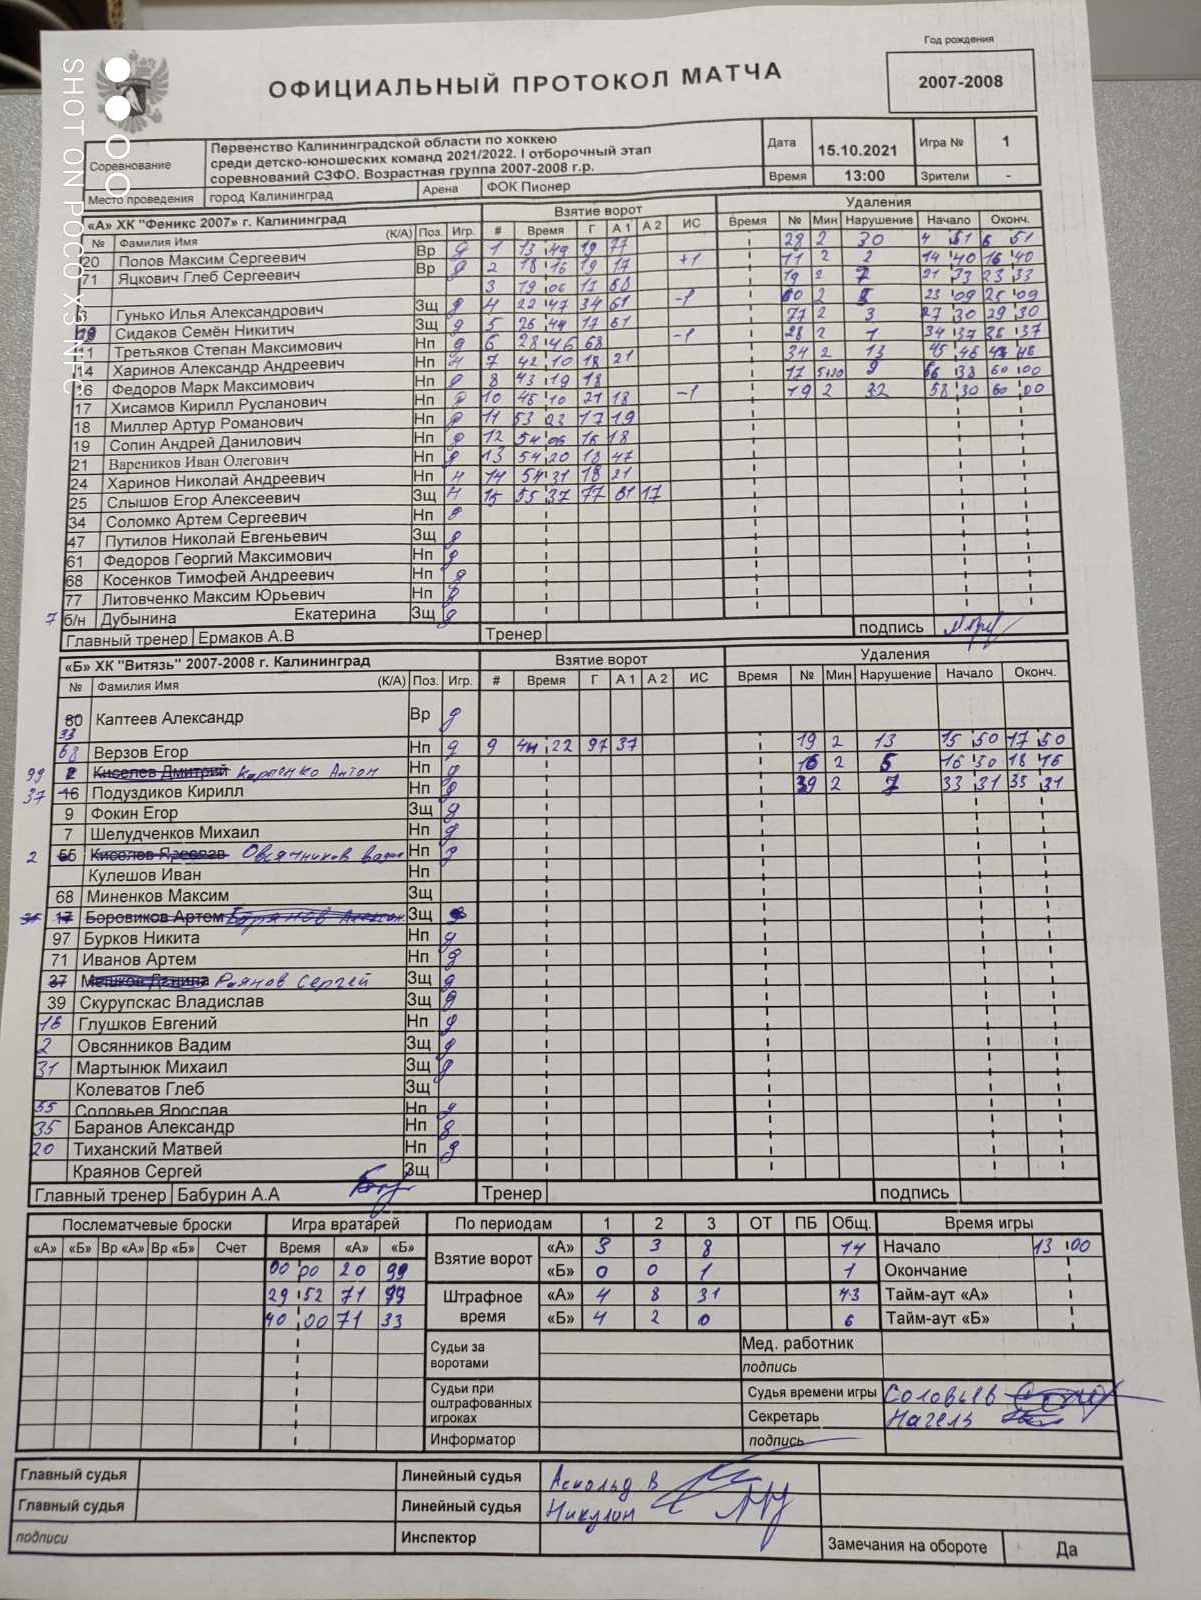 SHOT ON POCO X3 NFC
Год рождения
ОФИЦИАЛЬНЫЙ ПРОТОКОЛ МАТЧА
2007-2008
Соревнование Первенство Калининградской области по хоккею
среди детско-юношеских команд 2021/2022. I отборочный этап
соревнований СЗФО. Возрастная группа 2007-2008 г.р.
Дата 15.10.2021 Игра № 1
Время 13:00 Зрители -
Место проведения город Калининград Арена ФОК Пионер
«А» ХК "Феникс 2007» г. Калининград Взятие ворот Удаления
№ Фамилия Имя (К/А) Поз. Игр. # Время Г А 1 А 2 ИС Время № Мин Нарушение Начало Оконч.
20 Попов Максим Сергеевич Вр 1 13 49 19 77 28 2 30 4 51 6 51
71 Яцкович Глеб Сергеевич Вр 2 18 16 19 17 +1 11 2 2 14 40 16 40
3 19 06 17 68 19 2 7 21 33 23 33
Гунько Илья Александрович Зщ 4 22 47 34 61 -1 2 23 09 25 09
Сидаков Семён Никитич Зщ 5 26 44 17 61 77 2 3 27 30 29 30
Третьяков Степан Максимович Нп 6 28 46 68 -1 28 2 1 34 37 36 37
14 Харинов Александр Андреевич Нп 7 42 10 18 21 34 2 13 45 46
Федоров Марк Максимович Нп 8 43 19 18 17 9 38 60 00
17 Хисамов Кирилл Русланович Нп 10 45 10 21 18 -1 19 2 32 58 30 60 00
18 Миллер Артур Романович Нп 11 53 23 17 19
19 Сопин Андрей Данилович Нп 12 54 06 16 18
21 Вареников Иван Олегович Нп 13 54 20 18 47
24 Харинов Николай Андреевич Нп 14 54 31 18 21
25 Слышов Егор Алексеевич Зщ 15 55 37 77 61 17
34 Соломко Артем Сергеевич Нп
47 Путилов Николай Евгеньевич Зщ
61 Федоров Георгий Максимович Нп
68 Косенков Тимофей Андреевич Нп
77 Литовченко Максим Юрьевич Нп
7 б/н Дубынина Екатерина Зщ
Главный тренер Ермаков А.В Тренер подпись
«Б» ХК "Витязь" 2007-2008 г. Калининград Взятие ворот Удаления
№ Фамилия Имя (К/А) Поз. Игр. # Время Г А 1 А 2 ИС Время № Мин Нарушение Начало Оконч.
33 Каптеев Александр Вр
68 Верзов Егор Нп 9 44 22 97 37 19 2 13 15 50 17 50
99 Киселев Дмитрий Карпенко Антон Нп 16 2 5 16 30 18 16
37 16 Подуздиков Кирилл Нп 39 2 7 33 31 35 31
9 Фокин Егор Зщ
7 Шелудченков Михаил Нп
2 55 Киселев Ярослав Овсянников Вадим Нп
Кулешов Иван Нп
68 Миненков Максим Зщ
17 Боровиков Артем Зщ
97 Бурков Никита Нп
71 Иванов Артем Нп
37 Мешков Данила Раянов Сергей Зщ
39 Скурупскас Владислав Зщ
18 Глушков Евгений Нп
2 Овсянников Вадим Зщ
31 Мартынюк Михаил Зщ
Колеватов Глеб Зщ
55 Соловьев Ярослав Нп
35 Баранов Александр Нп
20 Тиханский Матвей Нп
Краянов Сергей Зщ
Главный тренер Бабурин А.А Тренер подпись
Послематчевые броски Игра вратарей По периодам 1 2 3 ОТ ПБ Общ. Время игры
«А» «Б» Вр «А» Вр «Б» Счет Время «А» «Б» Взятие ворот «А» 3 3 8 14 Начало 13 00
00 00 20 99 «Б» 0 0 1 1 Окончание
29 52 71 99 Штрафное время «А» 4 8 31 43 Тайм-аут «А»
40 00 71 33 «Б» 4 2 0 6 Тайм-аут «Б»
Судьи за воротами Мед. работник
подпись
Судьи при оштрафованных игроках Судья времени игры Соловьев
Секретарь Нагель
Информатор подпись
Главный судья Линейный судья Аскольд В
Главный судья Линейный судья Никулин
подписи Инспектор Замечания на обороте Да